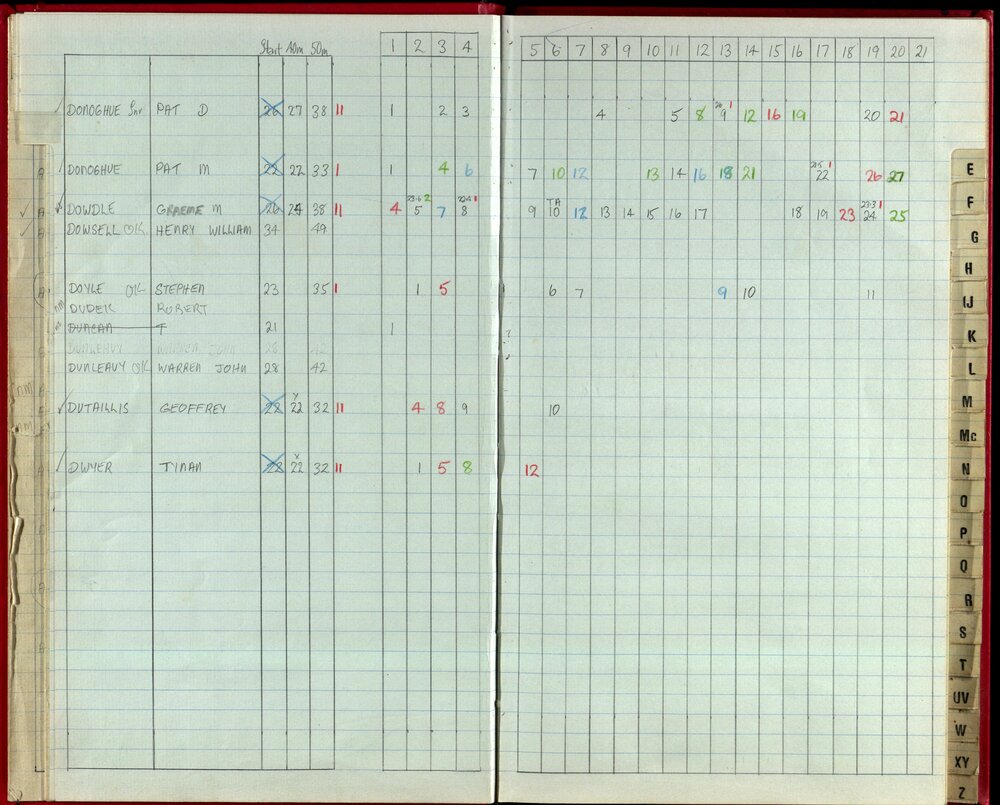 Start 40m 50m 1 2 3 4 5 6 7 8 9 10 11 12 13 14 15 16 17 18 19 20 21
DONOGHUE Snr PAT D 26 27 38 11 1 2 3 4 5 8 9 1 12 16 19 20 21
DONOGHUE PAT M 22 22 33 1 1 4 6 7 10 12 13 14 16 18 21 21.5 1 22 26 27
DOWDLE GRAEME M 26 24 38 11 4 23.6 2 5 7 1 8 9 TA 10 12 13 14 15 16 17 18 19 23 23.3 1 24 25
DOWSELL OK HENRY WILLIAM 34 49
DOYLE OK STEPHEN 23 35 1 1 5 6 7 9 10 11
DUDEK ROBERT
DUNCAN T 21 1
DUNLEAVY WARREN JOHN 28 42
DUNLEAVY OK WARREN JOHN 28 42
DUTAILLIS GEOFFREY 28 22 32 11 4 8 9 10
DWYER TYNAN 28 x 22 32 11 1 5 8 12
E
F
G
H
IJ
K
L
M
Mc
N
O
P
Q
R
S
T
UV
W
XY
Z